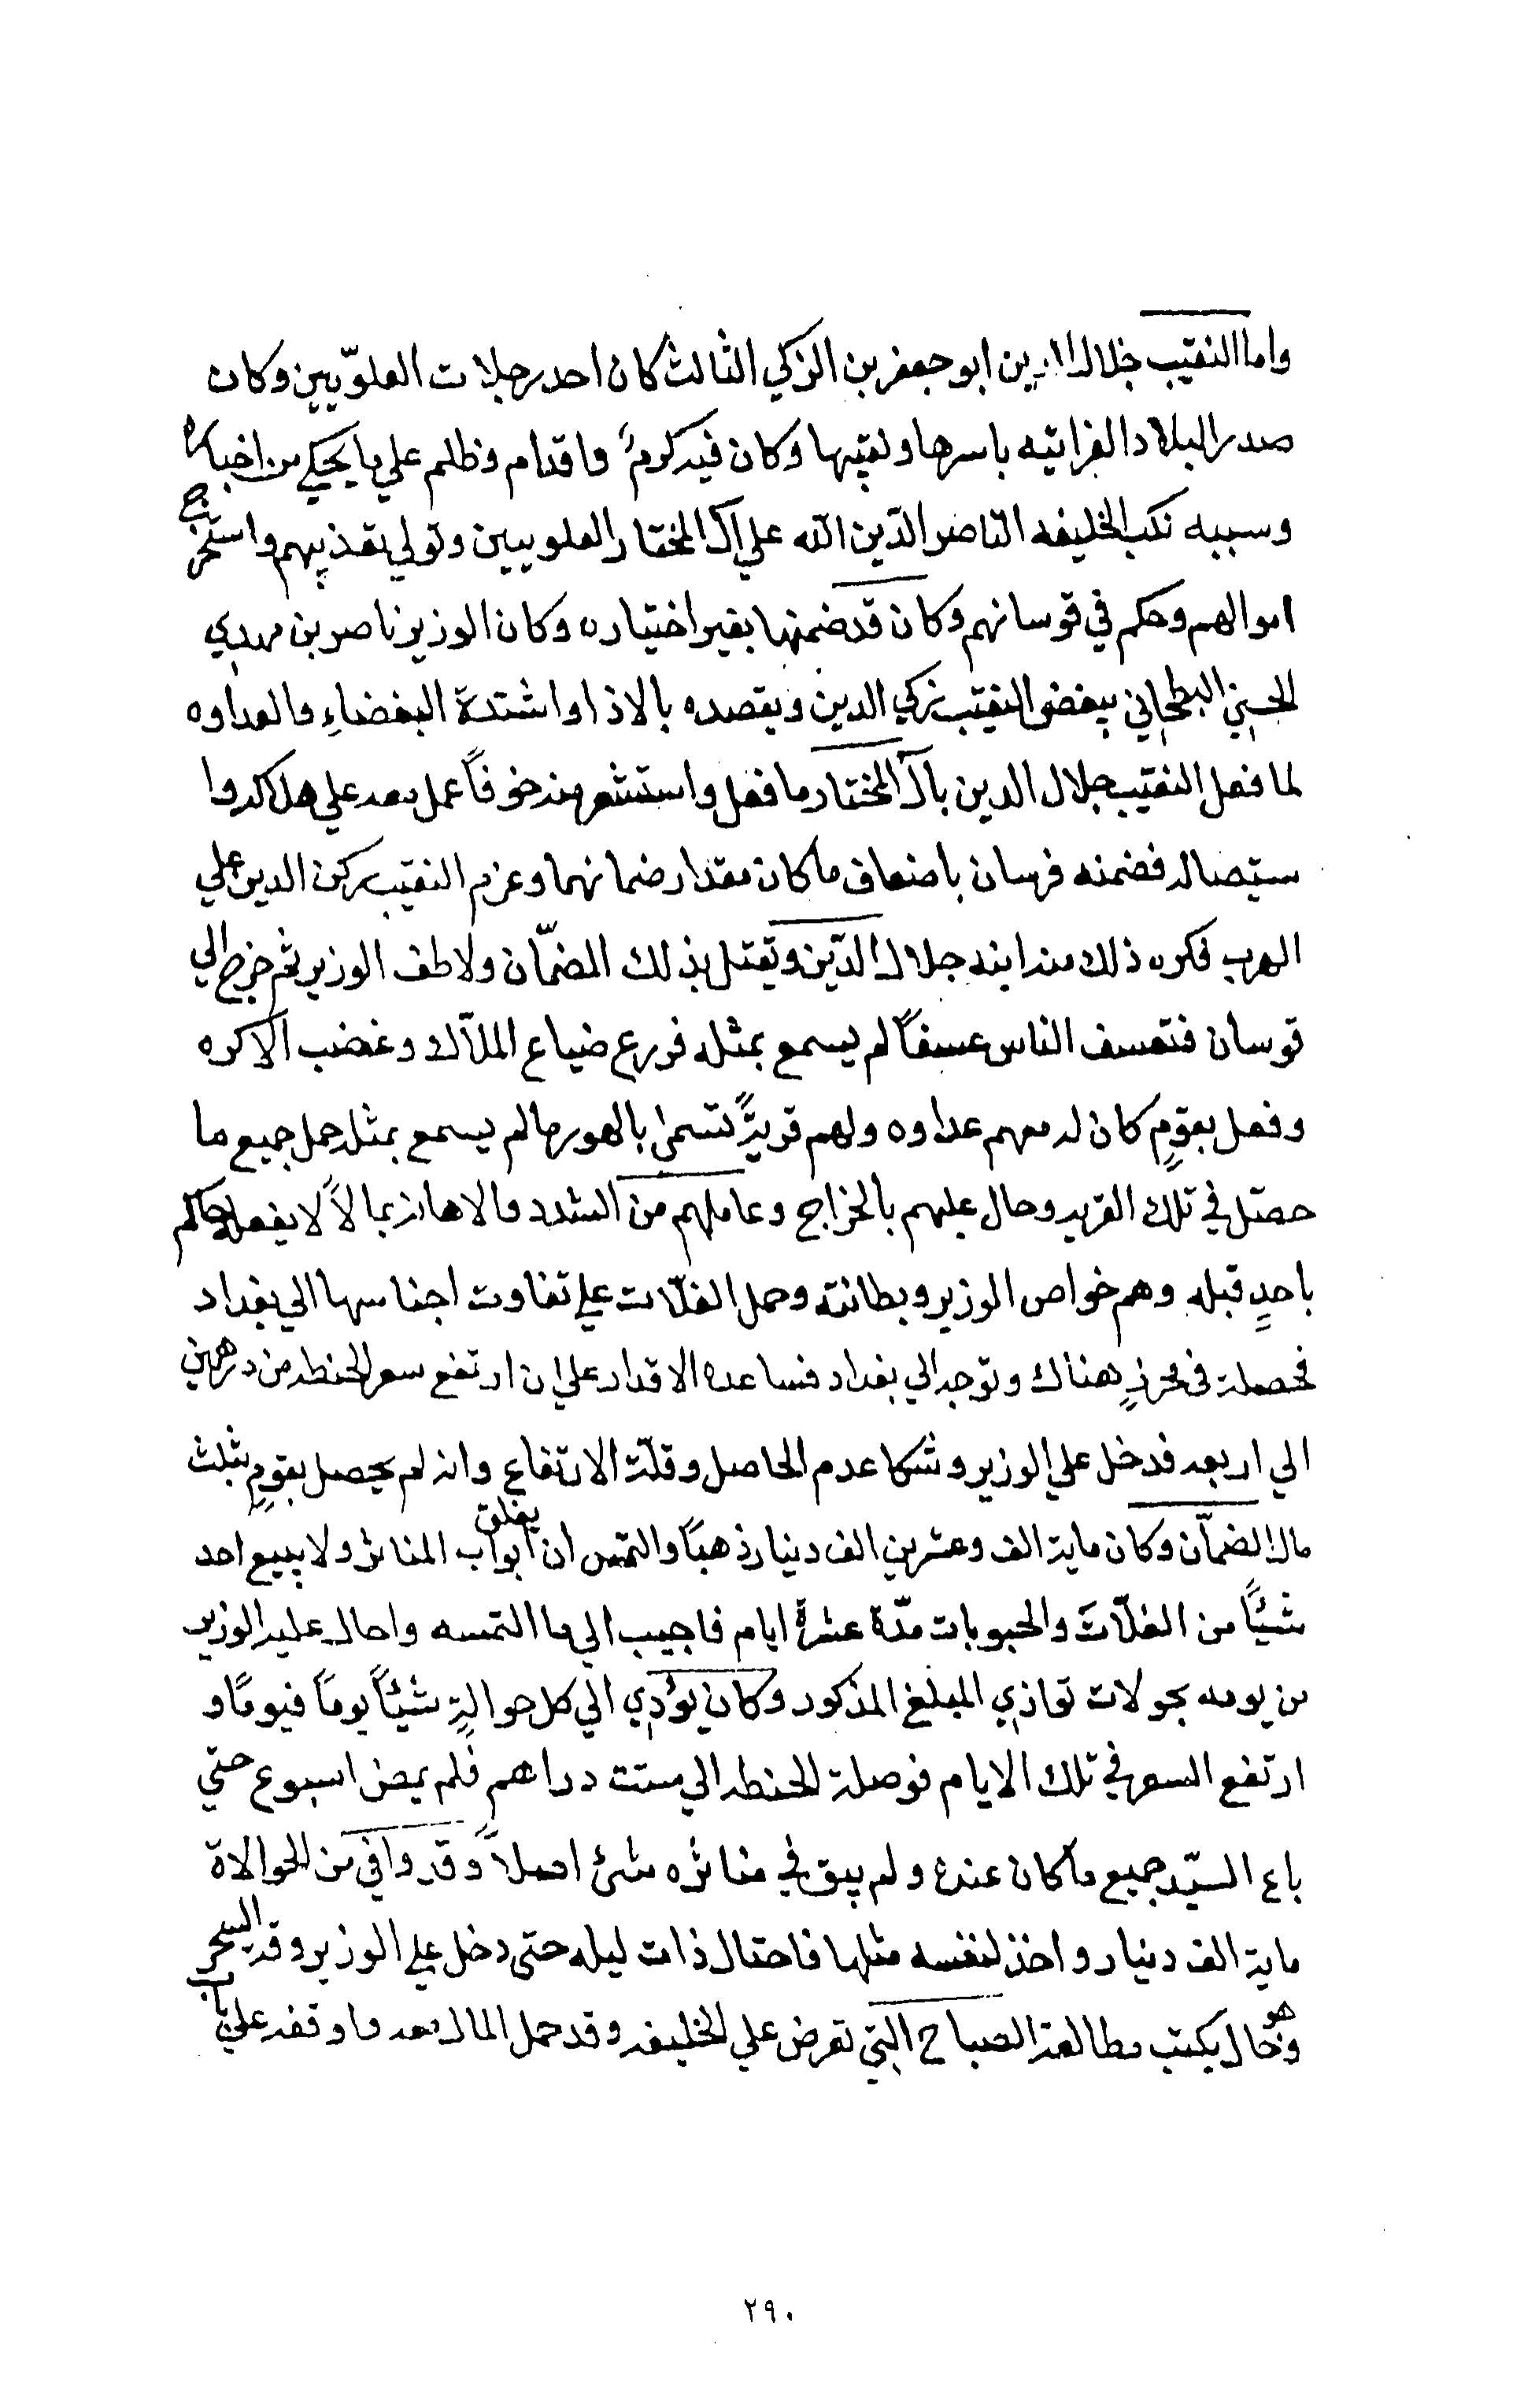 واما النقيب جلال الدين ابو جعفر بن الزكي الثالث كان احد رجلات العلوّيين وكان
صدر البلاد الفراتيه باسرها ونقيبها وكان فيه كرمٌ واقدام وظلم علي ما يحكي من اخباره
وسببه نكب الخليفه الناصر الدّين الله علي آل المختار العلويين وتولي تعذيبهم واستخرج
اموالهم وحكم في قوسانهم وكان قد ضمنها بغير اختياره وكان الوزير ناصر بن مهدي
الحسني البطحاني يبغض النقيب زكي الدين ويقصده بالاذا واشتدة البغضاءِ والعداوه
لما فعل النقيب جلال الدين بآل المختار ما فعل واستشعر منه خوفاً عمل بعد علي هلاكه وا
ستيصاله فضمنه فرسان باضعاف ما كان مقدار ضمانهما وعزم النقيب ركن الدين علي
الهرب فكره ذلك منه ابنه جلال الدّين وتقتل بذلك الضمّان ولاطف الوزير ثم خرج الي
قوسان فتعسف الناس عسفاً لم يسمع بمثله فزرع ضياع الملاّك وغضب الاكره
وفعل بقومٍ كان له معهم عداوه ولهم قريةً تسمى بالهور ما لم يسمع بمثله حمل جميع ما
حصّل في تلك القريه وحال عليهم بالخراج وعاملهم من التشدد والاهانة بما لاً لا يفعله حاكم
باحدٍ قبله وهم خواص الوزير وبطانته وحمل الغلاّت علي تفاوت اجناسها الي بغداد
فحصلة في محرزٍ هناك وتوجه الي بغداد فساعده الاقدار علي ان ارتفع سعر الحنطه من درهمين
الي اربعه فدخل علي الوزير وشكا عدم الحاصل وقلّة الارتفاع وانه لم يحصل بقومٍ بثلث
مال الضمّان وكان ماية الف وعشرين الف دينار ذهبًا والتمس ان يغلق ابواب المناثر ولا يبيع احد
شيئًا من الغلّات والحبوبات مدّة عشرة ايام فاجيب الي ما التمسه واحال عليه الوزير
من يومه بحولات توازي المبلغ المذكور وكان يؤدي الي كل حوالةٍ شيئًا يومًا فيومًا و
ارتفع السعر في تلك الايام فوصلة الحنطه الي ستت دراهم فلم يمض اسبوع حتي
باع السيّد جميع ما كان عنده ولم يبق في مناثره شئ اصلاً وقد وافي من الحوالاة
ماية الف دينار واخذ لنفسه مثلها فاحتال ذات ليله حتى دخل علي الوزير وقت السحر
وهو حال يكتب مطالعة الصباح التي تعرض علي الخليفه وقد حمل المال معه واوقفه علي باب
٢٩٠